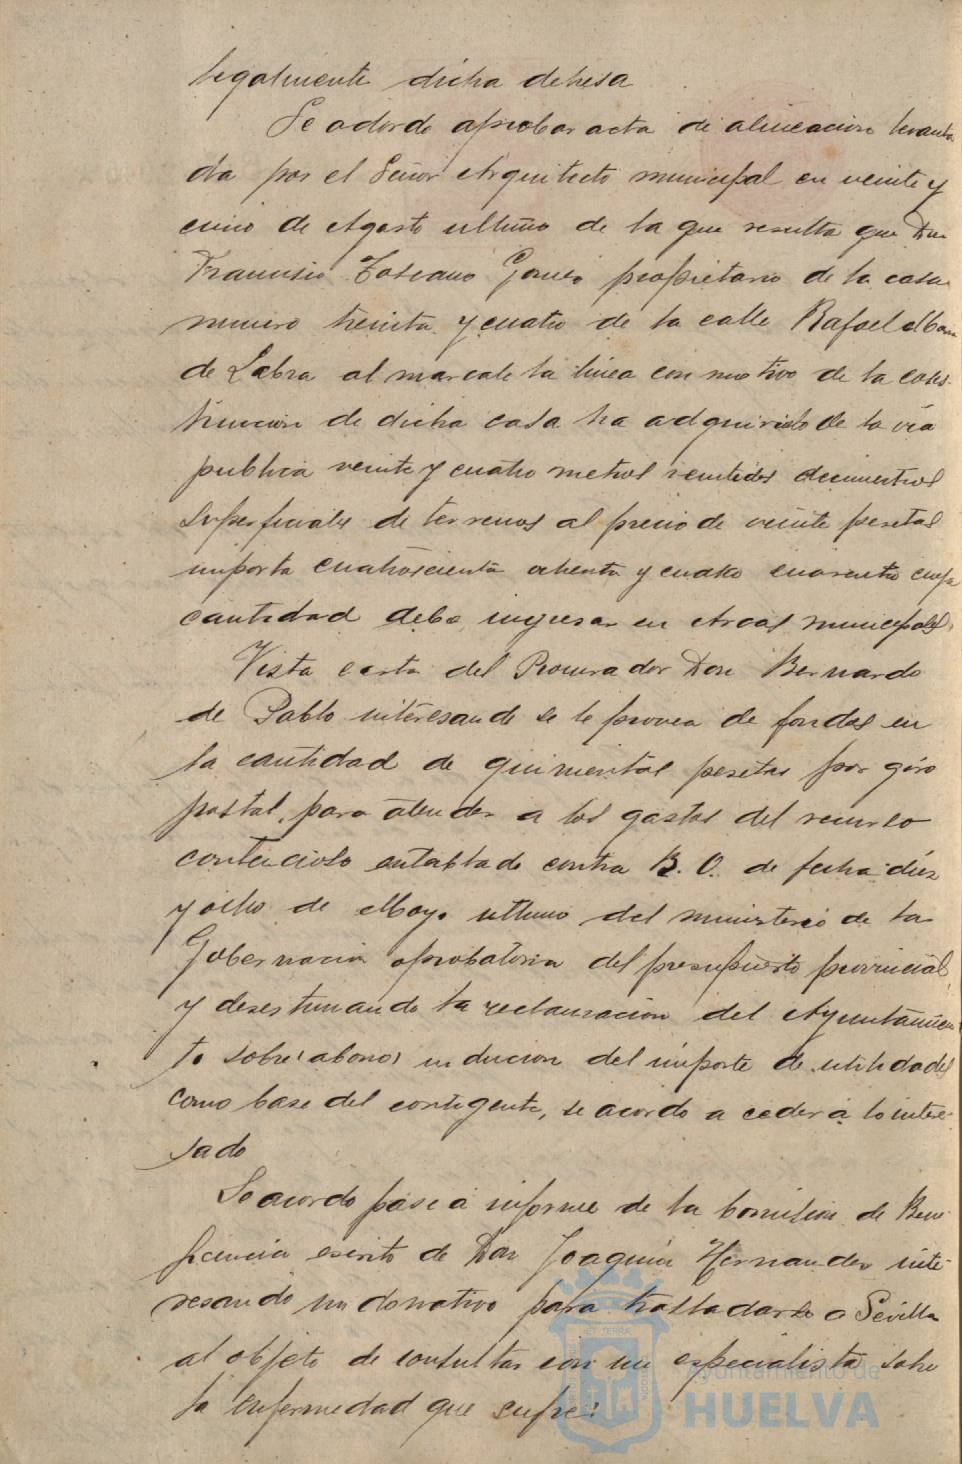 legalmente dicha dehesa
Se acordo aprobar acta de alineacion levanta
da por el Señor Arquitecto municipal en veinte y
cinco de Agosto ultimo de la que resulta que Don
Francisco Toscano Gomez propietario de la casa
numero treinta y cuatro de la calle Rafael Maria
de Labra al marcarle la linea con motivo de la cons-
truccion de dicha casa ha adquirido de la via
publica veinte y cuatro metros veintidos decimetros
superficiales de terrenos al precio de veinte pesetas
importa cuatrocienta ochenta y cuatro cuarenta cuya
cantidad debe ingresar en Arcas municipales.
Vista carta del Procurador Don Bernardo
de Pablo interesando se le provea de fondos en
la cantidad de quinientas pesetas por giro
postal, para atender a los gastos del recurso
contencioso entablado contra R. O. de fecha diez
y ocho de Mayo ultimo del ministerio de la
Gobernacion aprobatoria del presupuesto provincial
y desestimando la reclamacion del Ayuntamien
to sobre abono del importe de utilidades
como base del contigente, se acordo a ceder á lo intere-
sado
Se acordo pase á informe de la Comision de Bene-
ficencia escrito de Don Joaquin Hernandez inte-
resando un donativo para trasladarse a Sevilla
al objeto de consultar con un especialista sobre
la enfermedad que sufre.
Ayuntamiento de
HUELVA